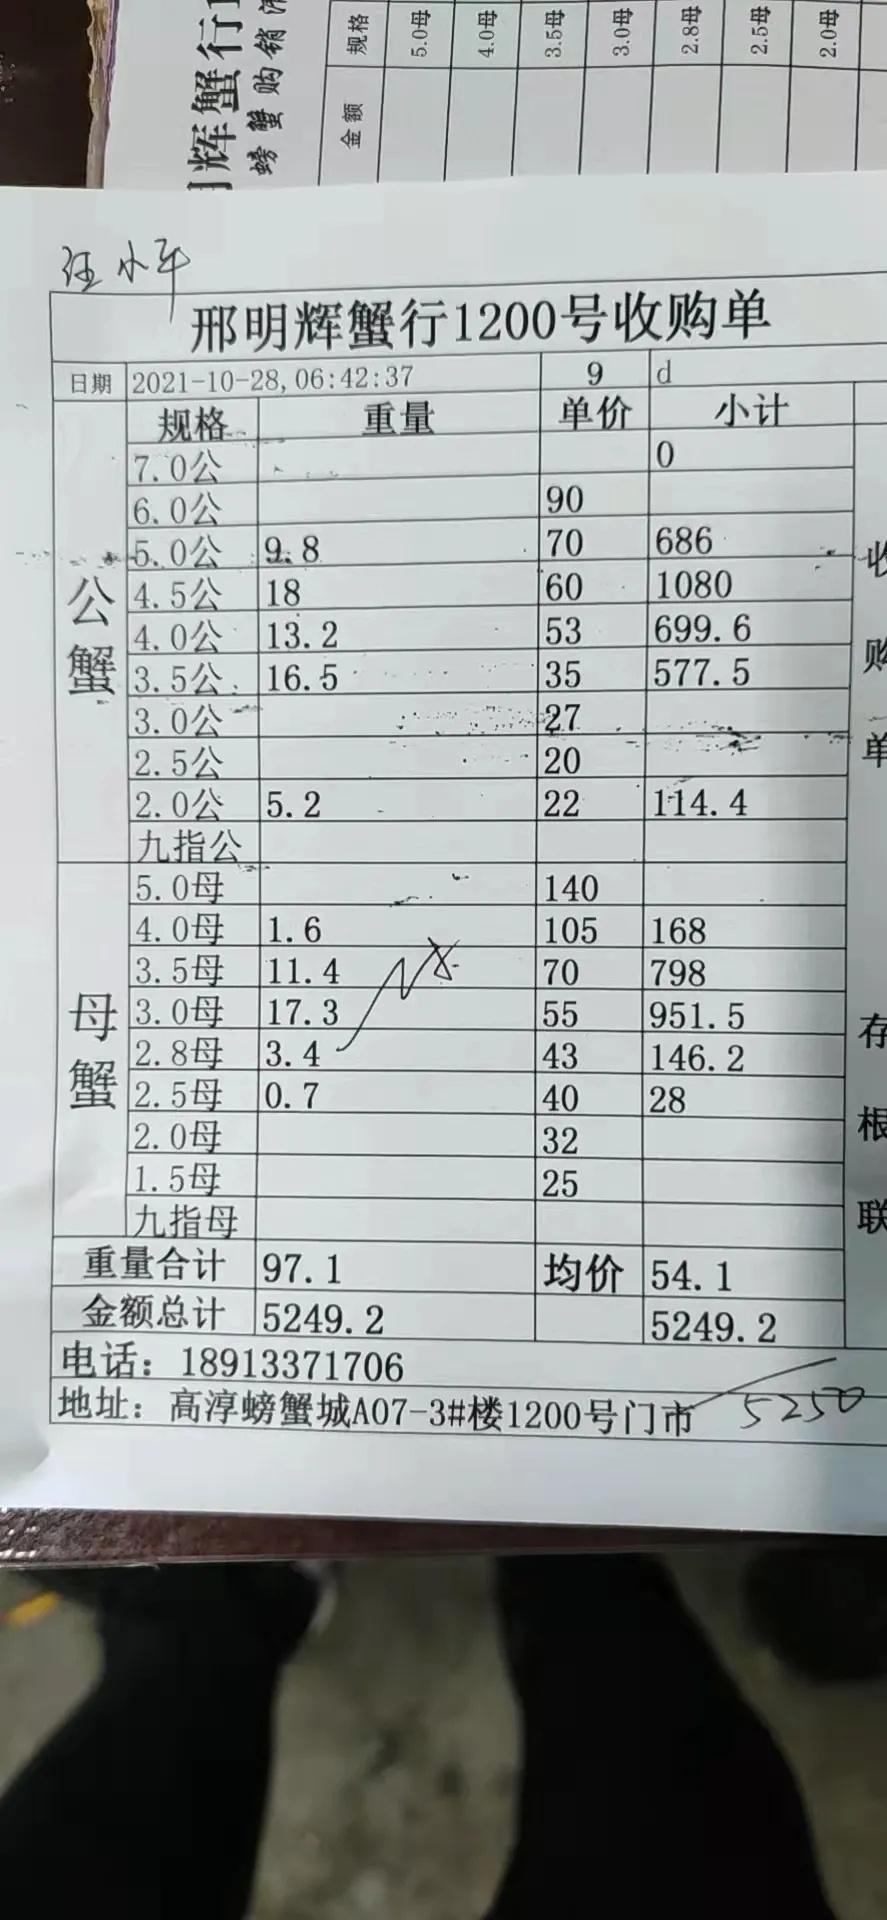 规格 5.0母 4.0母 3.5母 3.0母 2.8母 2.5母 2.0母
金额
辉蟹行
螃蟹购销
汪小军
邢明辉蟹行1200号收购单
日期 2021-10-28,06:42:37 9 d
公蟹
规格 重量 单价 小计
7.0公 0
6.0公 90
5.0公 9.8 70 686
4.5公 18 60 1080
4.0公 13.2 53 699.6
3.5公 16.5 35 577.5
3.0公 27
2.5公 20
2.0公 5.2 22 114.4
九指公
母蟹
5.0母 140
4.0母 1.6 105 168
3.5母 11.4 70 798
3.0母 17.3 55 951.5
2.8母 3.4 43 146.2
2.5母 0.7 40 28
2.0母 32
1.5母 25
九指母
重量合计 97.1 均价 54.1
金额总计 5249.2 5249.2
电话：18913371706
地址：高淳螃蟹城A07-3#楼1200号门市 5250
收购单
存根联